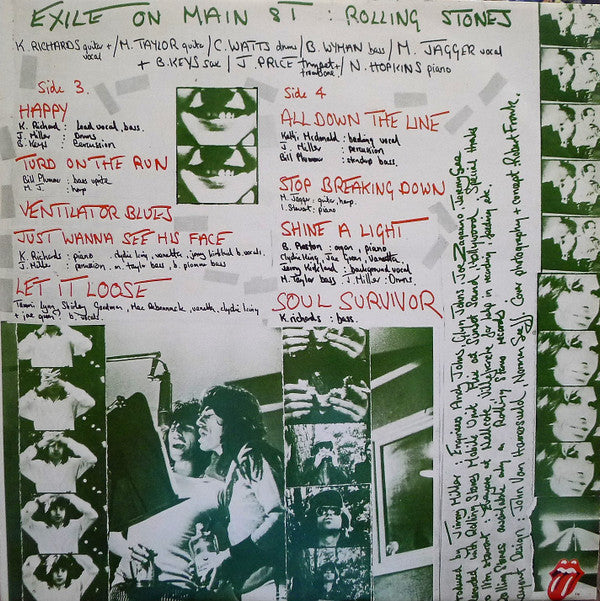 EXILE ON MAIN ST : ROLLING STONES
K. RICHARDS guitar + vocal / M. TAYLOR guitar / C. WATTS drums / B. WYMAN bass / M. JAGGER vocal
+ B. KEYS sax / J. PRICE trumpet + trombone / N. HOPKINS piano
Side 3.
HAPPY
K. Richard : Lead vocal, bass.
J. Miller : Drums
B. Keys : Percussion
TURD ON THE RUN
Bill Plumer : bass
M. J. : harp
VENTILATOR BLUES
JUST WANNA SEE HIS FACE
K. Richards : piano clydie king, vanetta, jerry kirkland b. vocals.
J. Miller : percussion m. taylor bass b. plummer bass
LET IT LOOSE
Tammi Lynn, Shirley Goodman, Mac Rebennack, vanetta, clydie king
+ joe green : b. vocals
Side 4
ALL DOWN THE LINE
Kathi Mcdonald : backing vocal
J. Miller : percussion
Bill Plummer : standup bass.
STOP BREAKING DOWN
M. Jagger : guitar, harp.
I. Stewart : piano
SHINE A LIGHT
B. Preston : organ, piano
Clydie King, Joe Green, Vanetta,
Jerry Kirkland : background vocal
M. Taylor bass J. Miller : Drums.
SOUL SURVIVOR
K. richards : bass.
Produced by Jimmy Miller : Engineers Andy Johns, Glyn Johns, Joe Zagarino, Jeremy Gee
recorded with Rolling Stones Mobile Unit, Mix at Sunset Sound, Hollywood. Special thanks
to
Rolling Stones
Layout Design : John Van Hamersveld / Norman Seeff Cover photography + concept Robert Frank.